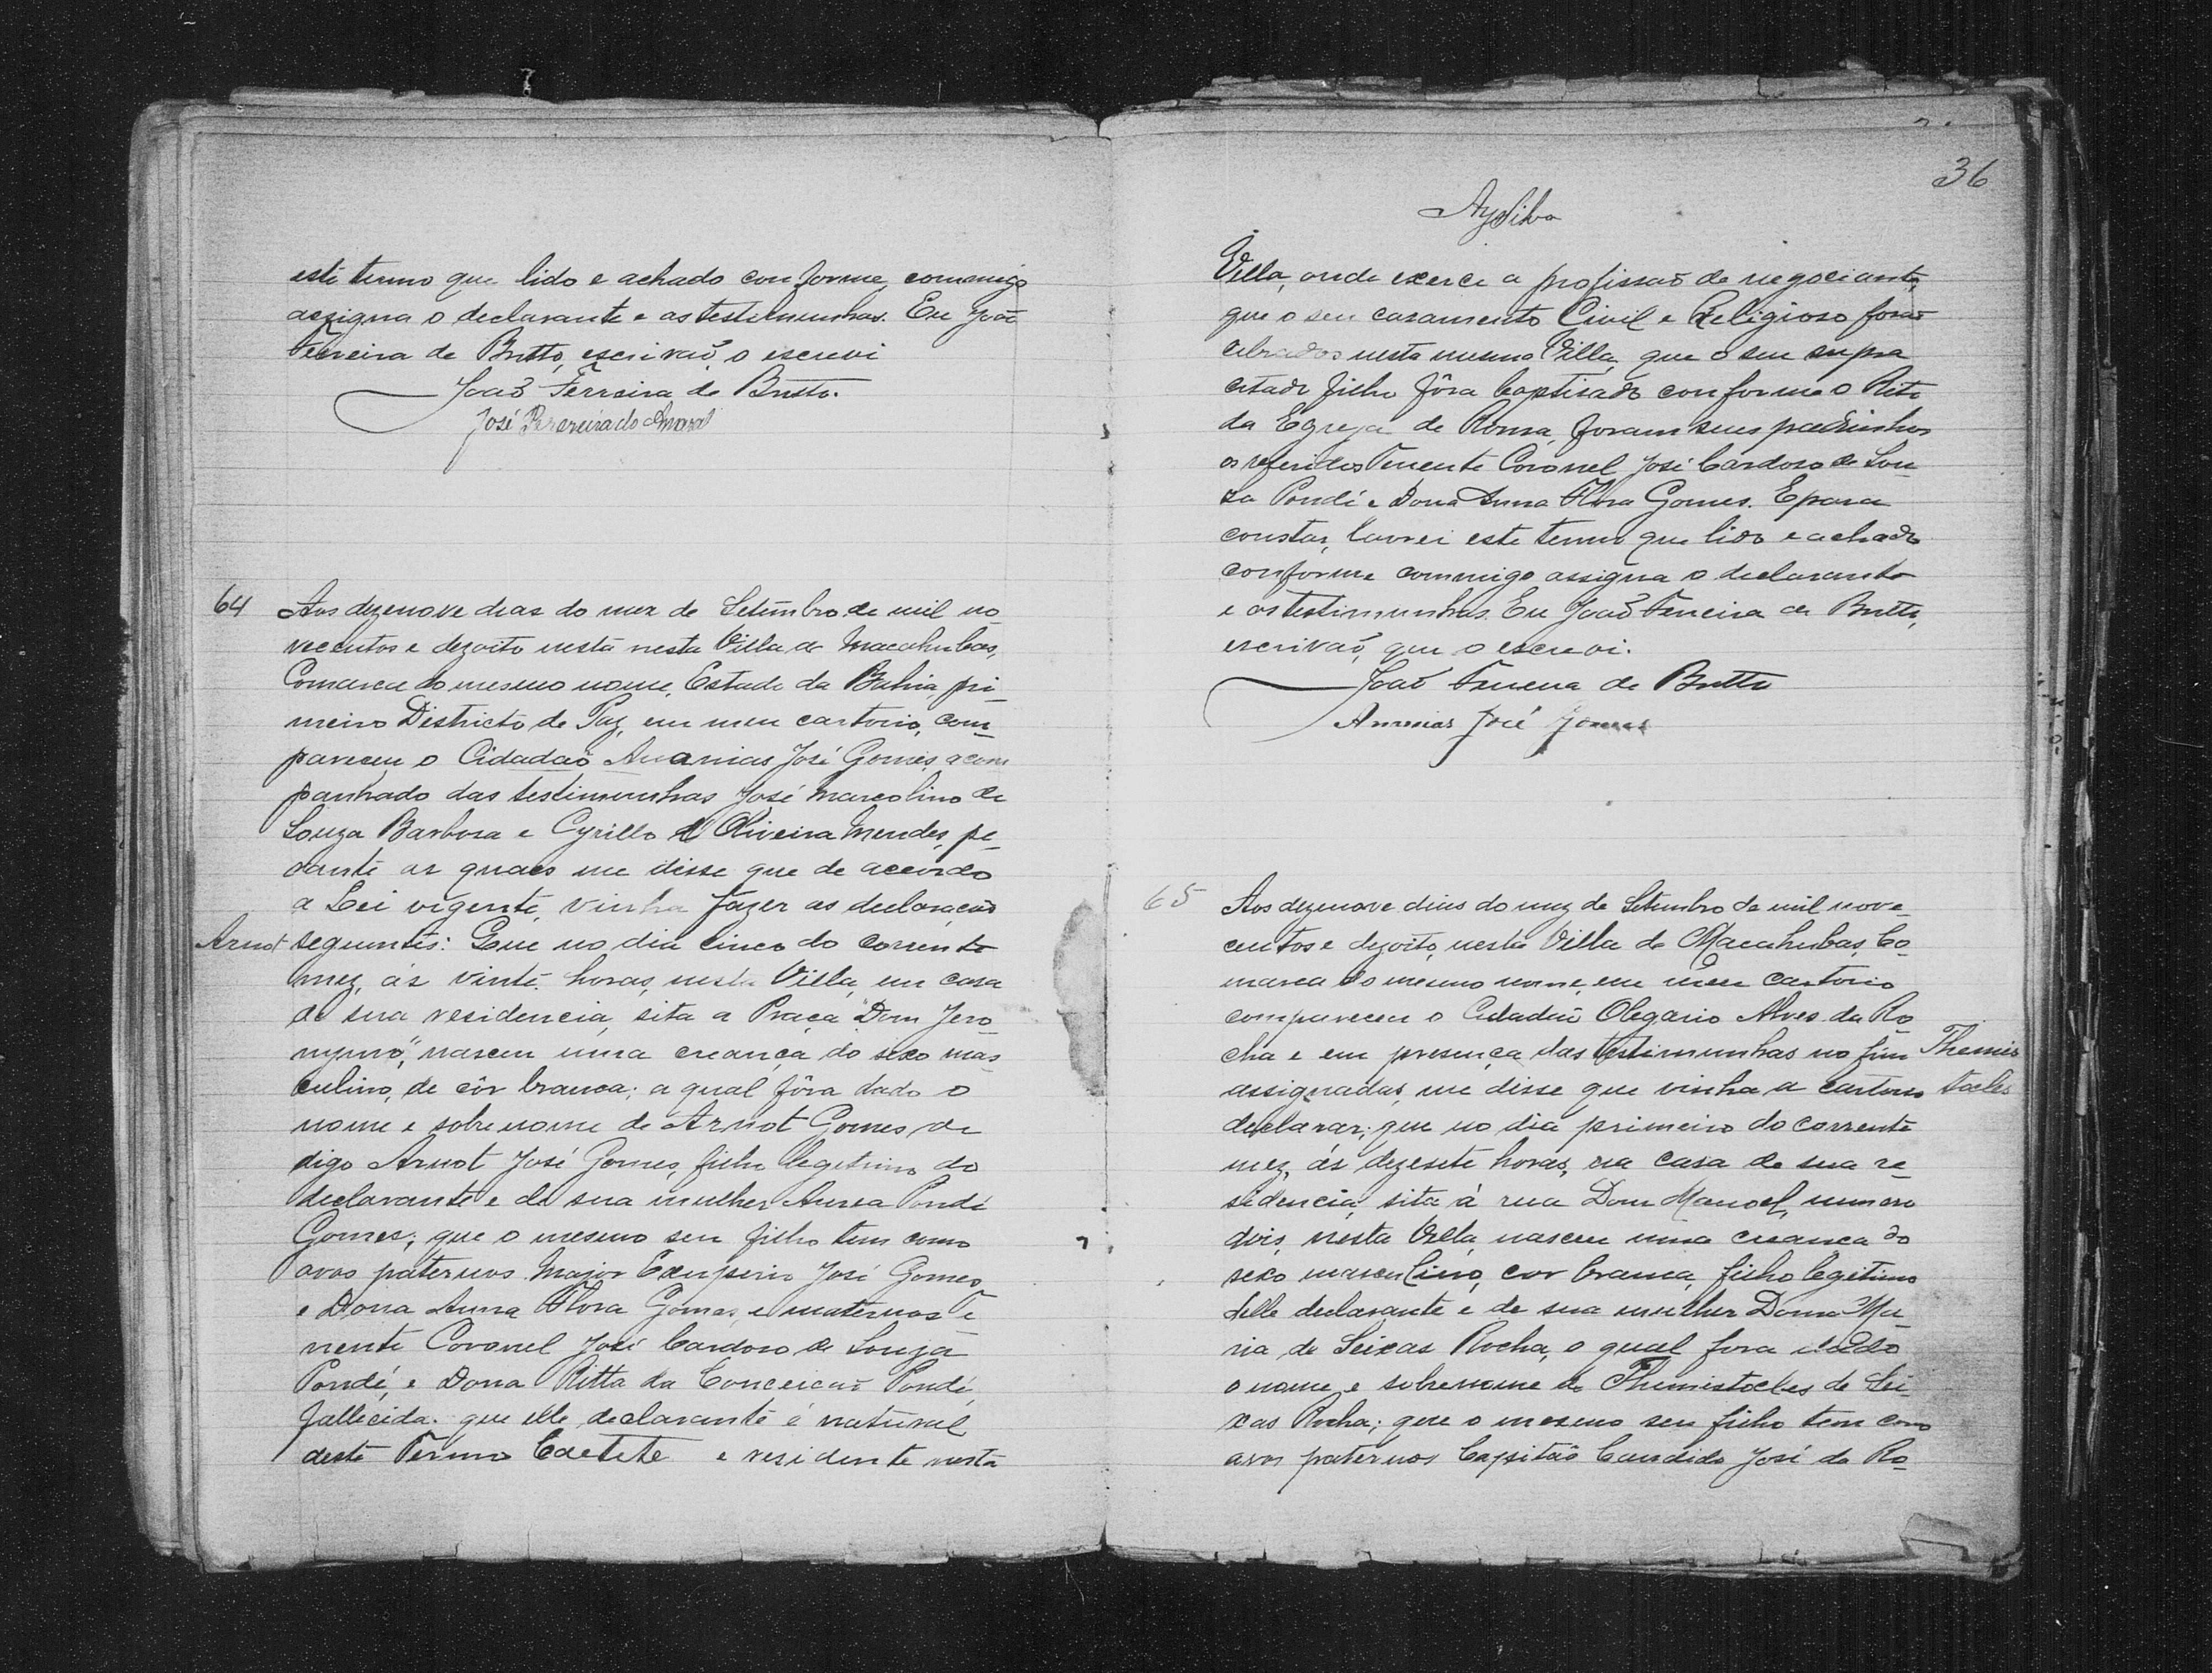 este termo que lido e achado conforme, commigo
assigna o declarante e as testemunhas. Eu João
Ferreira de Britto, escrivaõ, o escrevi
João Ferreira de Britto.
José Pereira do Amaral
64
Aos dezenove dias do mez de Setembro de mil no
vecentos e dezoito nesta nesta Villa de Macahubas,
Comarca do mesmo nome, Estado da Bahia, pri
meiro Districto de Paz, em meu cartorio, com
pareceu o Cidadaõ Ananias José Gomes, acom
panhado das testemunhas José Marcolino de
Souza Barbosa e Cyrillo d' Oliveira Mendes, pe
rante as quaes me disse que de accordo
a Lei vigente, vinha fazer as declaracoes
Arnot
seguintes: Que no dia cinco do corrente
mez, ás vinte horas, nesta Villa, em casa
de sua residencia, sita a Praça "Dom Jero
nymo", nasceu uma creança do sexo mas
culino, de côr branca; a qual fôra dado o
nome e sobrenome de Arnot Gomes de
digo Arnot José Gomes, filho legitimo do
declarante e de sua mulher Aurea Pondé
Gomes; que o mesmo seu filho tem como
avos paternos Major Exuperio José Gomes
e Dona Anna Flora Gomes, e maternos Te
nente Coronel José Cardoso de Souza
Pondé, e Dona Ritta da Conceicaõ Pondé,
fallecida. que elle declarante é natural
deste Termo Caetete e residente nesta
36
Villa, onde exerce a profissaõ de negociante,
que o seu casamento Civil e Religioso foraõ
celbrados nesta mesma Villa, que o seu supra
citado filho fôra baptisado conforme o Rito
da Egreja de Roma, foram seus padrinhos
os referidos Tenente Coronel José Cardoso de Sou
za Pondé e Dona Anna Flora Gomes. E para
constar, lavrei este termo que lido e achado
conforme commigo assigna o declarante
e as testimunhas. Eu João Ferreira de Britto,
escrivaõ, que o escrevi.
João Ferreira de Britto
Ananias José Gomes
65
Aos dezenove dias do mez de Setembro de mil nove
centos e dezoito, nesta Villa de Macahubas, Co
marca do mesmo nome, em meu cartorio
compareceu o Cidadão Olegario Alves da Ro
cha e em presença das testimunhas no fim
Themis
assignadas, me disse que vinha a cartorio
tocles
declarar; que no dia primeiro do corrente
mez, ás dezesete horas, na casa de sua re
sidencia, sita á rua Dom Manoel, numero
dois, nesta Villa, nasceu uma creança do
sexo masculino, cor branca, filho legitimo
delle declarante e de sua mulher Dona Ma
ria de Seixas Rocha, o qual fora dado
o nome e sobrenome de Themistocles de Sei
xas Rocha; que o mesmo seu filho tem como
avos paternos Capitão Candido José da Ro